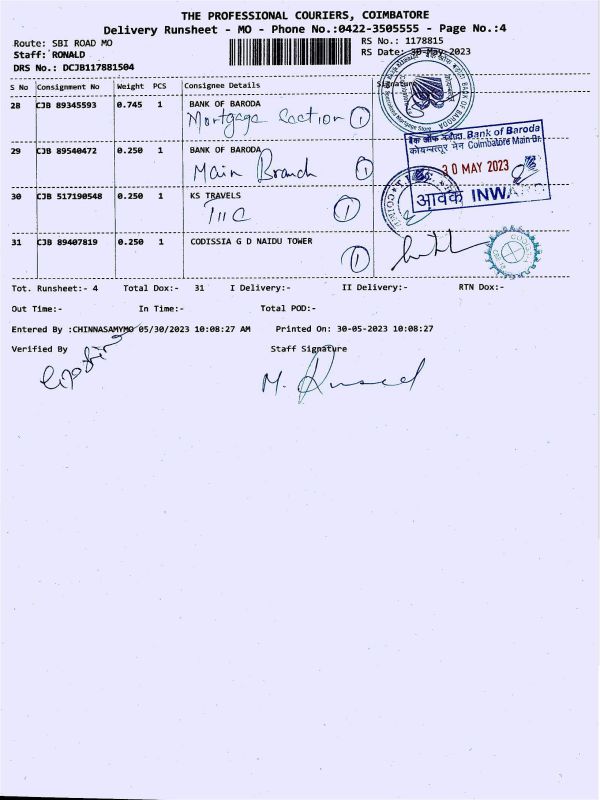 THE PROFESSIONAL COURIERS, COIMBATORE
Delivery Runsheet - MO - Phone No.:0422-3505555 - Page No.:4
Route: SBI ROAD MO
RS No.: 1178815
Staff: RONALD
RS Date: 30-May-2023
DRS No.: DCJB117881504
S No Consignment No Weight PCS Consignee Details Signature
28 CJB 89345593 0.745 1 BANK OF BARODA
Mortgage Section 1
29 CJB 89540472 0.250 1 BANK OF BARODA
Main Branch 1
बैंक ऑफ बड़ौदा Bank of Baroda
कोयम्बत्तूर मेन Coimbatore Main Br.
30 MAY 2023
आवक INWARD
30 CJB 517190548 0.250 1 KS TRAVELS
1
31 CJB 89407819 0.250 1 CODISSIA G D NAIDU TOWER
1
Tot. Runsheet:- 4 Total Dox:- 31 I Delivery:- II Delivery:- RTN Dox:-
Out Time:- In Time:- Total POD:-
Entered By :CHINNASAMYMO 05/30/2023 10:08:27 AM Printed On: 30-05-2023 10:08:27
Verified By Staff Signature